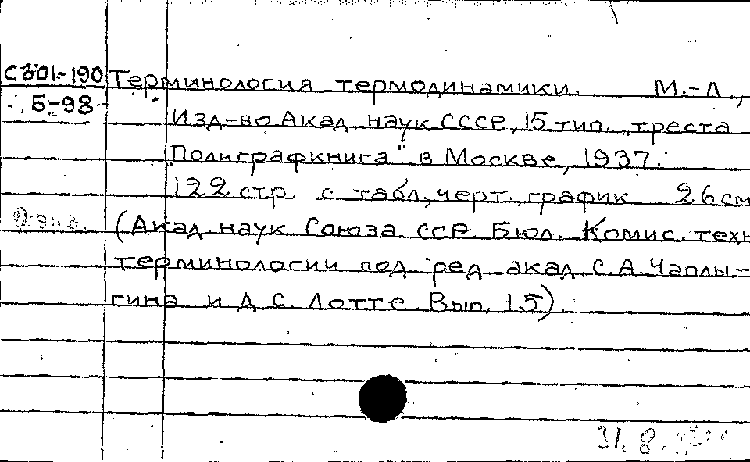 С301-190 Терминология термодинамики. М.-Л.,
Б-98 Изд-во Акад наук СССР, 15 тип. треста
"Полиграфкнига" в Москве, 1937.
122 стр. с табл., черт. график 26 см
(Акад. наук Союза ССР. Бюл. Комис. техн
терминологии под ред акад С. А. Чаплы-
гина и Д. С. Лотте Вып. 15).
31. 8.